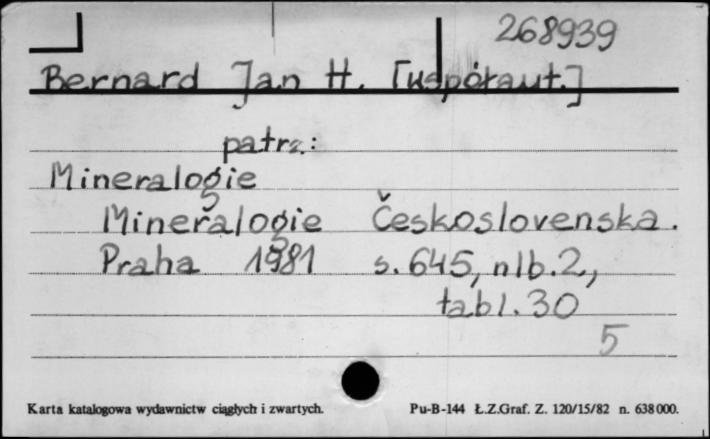 268939
Bernard Jan H. [współaut.]
patrz:
Mineralogie
Mineralogie Československa.
Praha 1981 s. 645, nlb. 2,
tabl. 30
5
Karta katalogowa wydawnictw ciągłych i zwartych. Pu-B-144 Ł.Z.Graf. Z. 120/15/82 n. 638000.